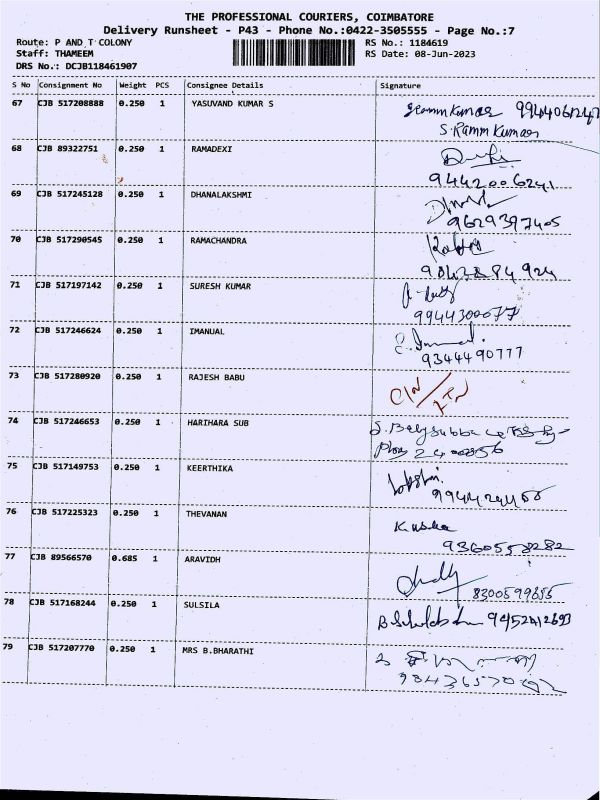 THE PROFESSIONAL COURIERS, COIMBATORE
Delivery Runsheet - P43 - Phone No.:0422-3505555 - Page No.:7
Route: P AND T COLONY
RS No.: 1184619
Staff: THAMEEM
RS Date: 08-Jun-2023
DRS No.: DCJB118461907
S No Consignment No Weight PCS Consignee Details Signature
67 CJB 517208888 0.250 1 YASUVAND KUMAR S
S. Ramm Kumar
68 CJB 89322751 0.250 1 RAMADEXI
9442006241
69 CJB 517245128 0.250 1 DHANALAKSHMI
9629397405
70 CJB 517290545 0.250 1 RAMACHANDRA
71 CJB 517197142 0.250 1 SURESH KUMAR
9944300077
72 CJB 517246624 0.250 1 IMANUAL
9344490777
73 CJB 517280920 0.250 1 RAJESH BABU
74 CJB 517246653 0.250 1 HARIHARA SUB
75 CJB 517149753 0.250 1 KEERTHIKA
76 CJB 517225323 0.250 1 THEVANAN
9360558282
77 CJB 89566570 0.685 1 ARAVIDH
8300599655
78 CJB 517168244 0.250 1 SULSILA
79 CJB 517207770 0.250 1 MRS B.BHARATHI